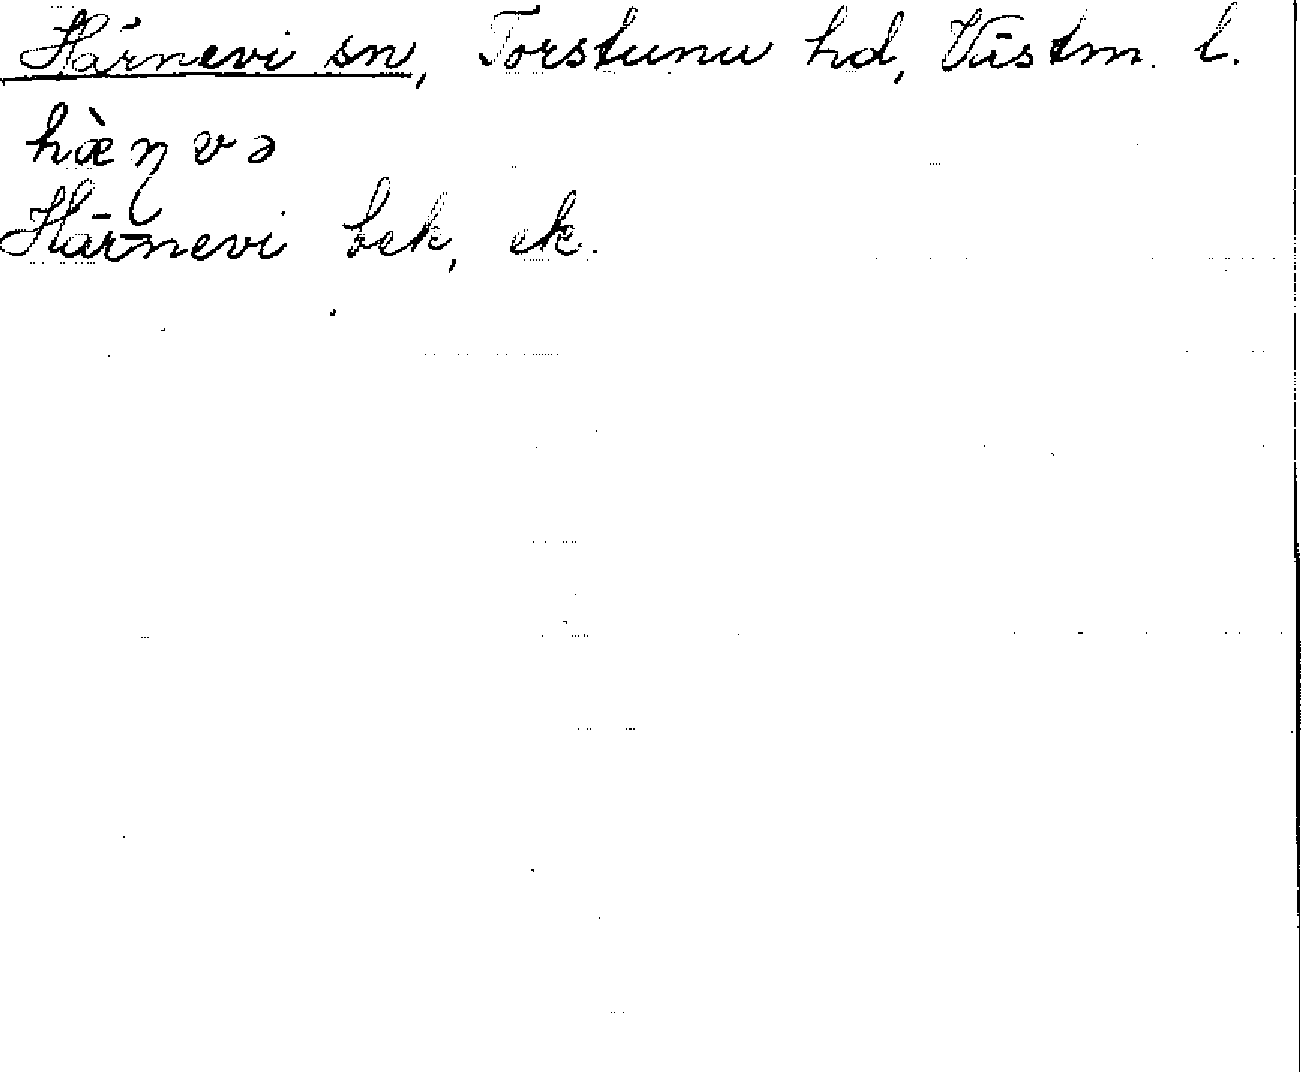 Härnevi sn, Torstuna hd, Västm. l.
hæ̀ɳvə
Härnevi bek, ek.